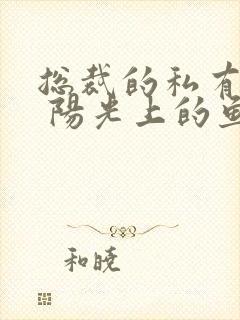 总裁的私有
陽光上的鱼
和晓